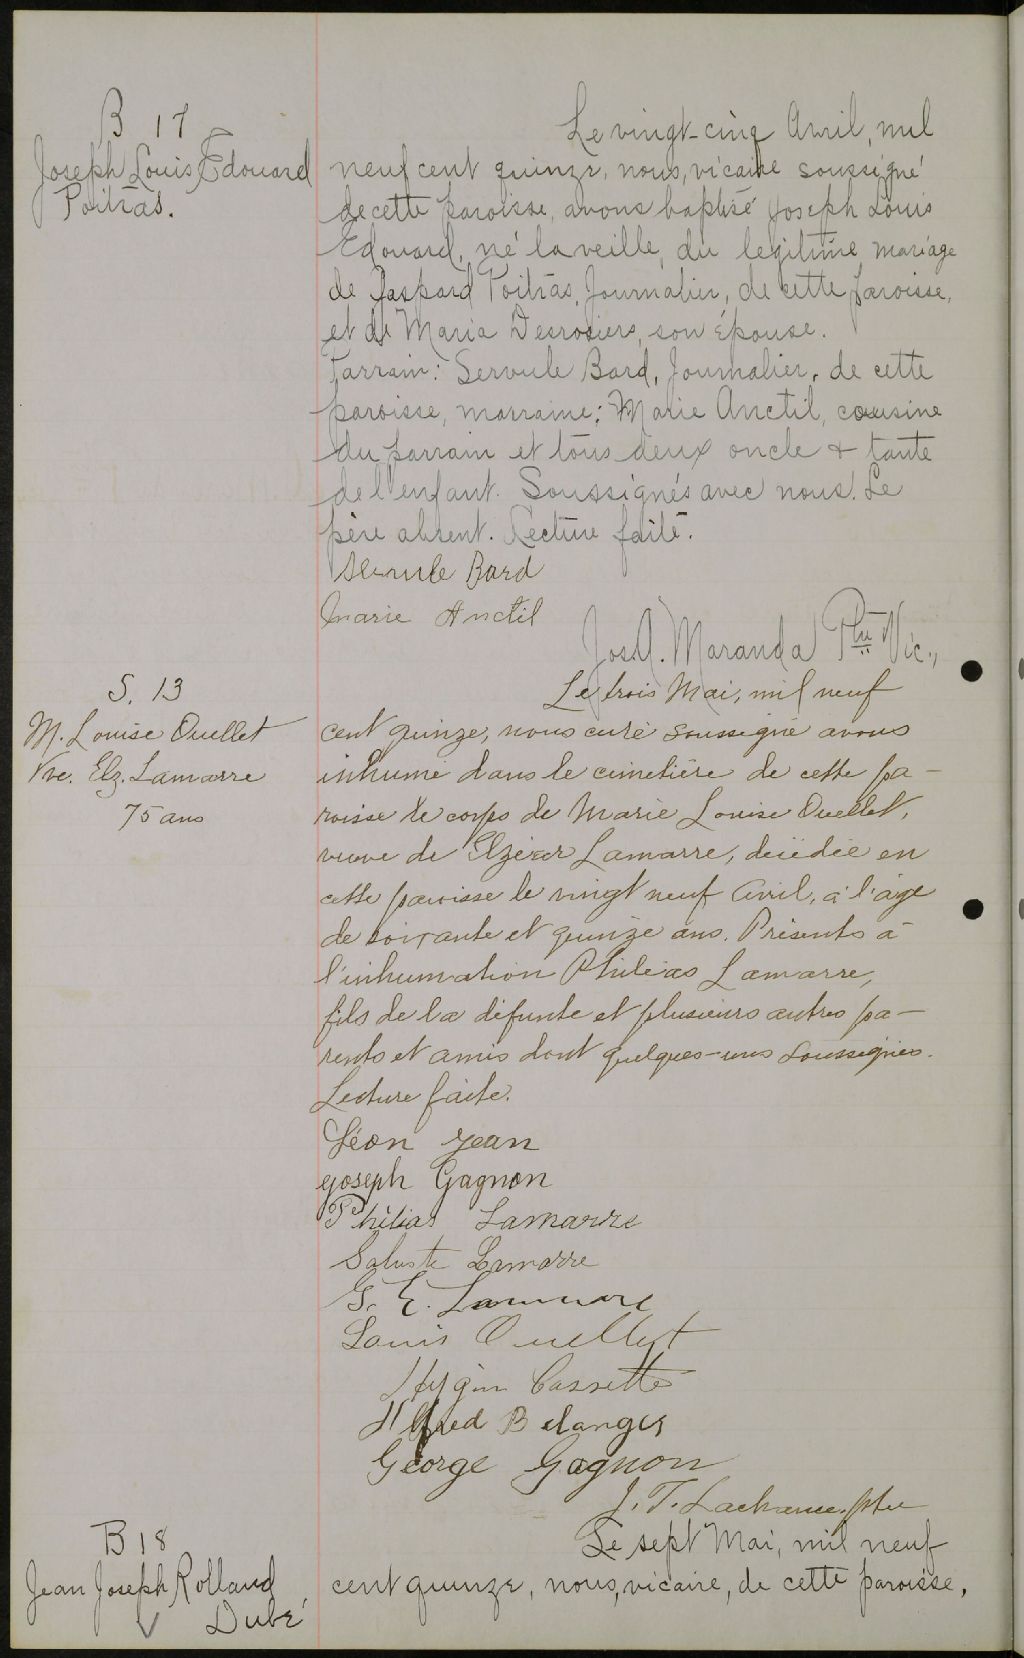 B 17
Joseph Louis Edouard
Poitras.
Le vingt-cinq Avril, mil
neuf cent quinze, nous, vicaire soussigné
de cette paroisse, avons baptisé Joseph Louis
Edouard, né la veille, du legitime mariage
de Gaspard Poitras, Journalier, de cette paroisse,
et de Maria Desrosiers, son épouse.
Parrain: Servule Bard, Journalier, de cette
paroisse, marraine: Marie Anctil, cousine
du parrain et tous deux oncle & tante
de l'enfant. Soussignés avec nous. Le
père absent. Lecture faite.
Servule Bard
Marie Anctil
Jos. A. Maranda Ptre Vic.,
S. 13
M. Louise Ouellet
Vve. Elz. Lamarre
75 ans
Le trois Mai, mil neuf
cent quinze, nous curé soussigné avons
inhumé dans le cimetière de cette pa-
roisse le corps de Marie Louise Ouellet,
veuve de Elzéar Lamarre, décédée en
cette paroisse le vingt neuf Avril, à l'âge
de soixante et quinze ans. Présents à
l'inhumation Philéas Lamarre,
fils de la défunte et plusieurs autres pa-
rents et amis dont quelques-uns soussignés.
Lecture faite.
Léon Jean
Joseph Gagnon
Philias Lamarre
Saluste Lamarre
G. E. Lammare
Louis Ouellet
Hygin Cassette
Alfred Belanger
George Gagnon
J. T. Lachance, ptre
B 18
Jean Joseph Rolland
Dubé
Le sept Mai, mil neuf
cent quinze, nous, vicaire, de cette paroisse,